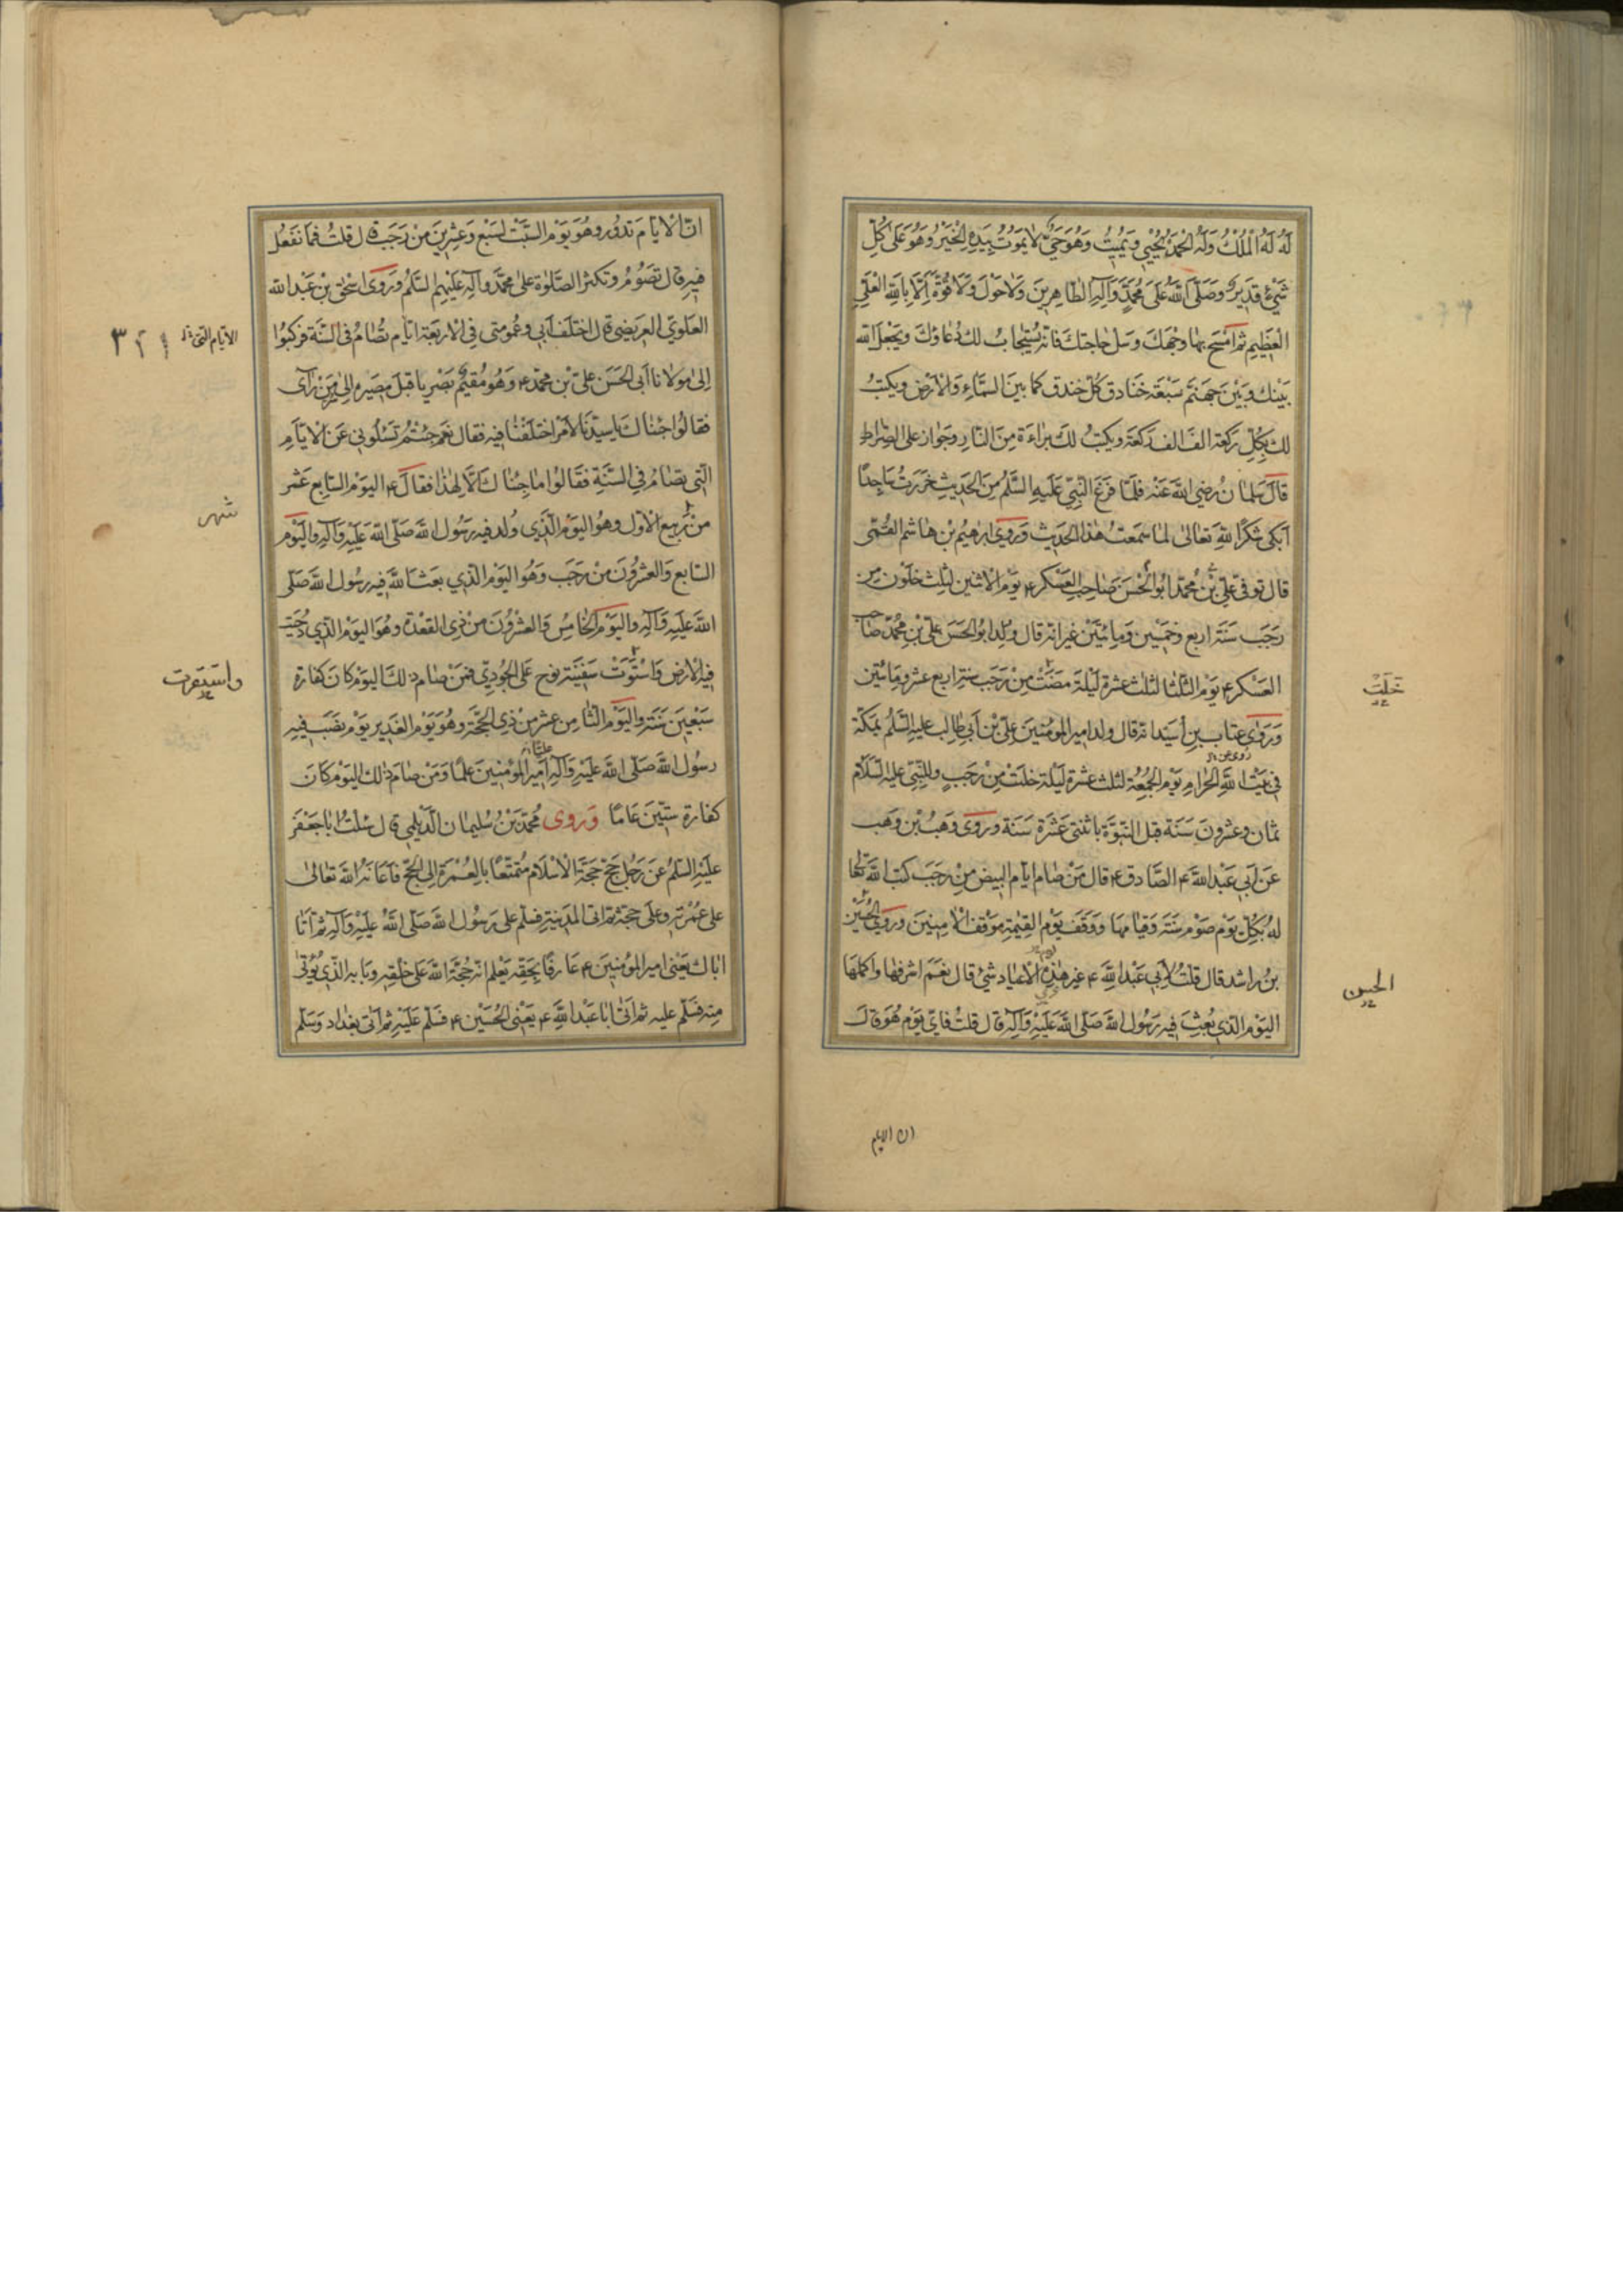 لَهُ لَهُ الْمُلْكُ وَلَهُ الْحَمْدُ يُحْيِي وَيُمِيتُ وَهُوَ حَيٌّ لَا يَمُوتُ بِيَدِهِ الْخَيْرُ وَهُوَ عَلَىٰ كُلِّ
شَيْءٍ قَدِيرٌ وَصَلَّى اللهُ عَلَى مُحَمَّدٍ وَآلِهِ الطَّاهِرِينَ وَلَا حَوْلَ وَلَا قُوَّةَ اِلَّا بِاللهِ الْعَلِيِّ
الْعَظِيمِ ثم امْسَح بها وجْهَكَ وَسَل حاجتك فانه يُستجابُ لك دُعاؤكَ ويَجْعل الله
بَيْنك وبَيْن جهنّم سَبْعَة خَنَادق كُلّ خندق كما بينَ السَّماءِ وَالْارْض ويكتبُ
لك بِكُلِّ ركعة الفَ الف رَكعَة ويكتبُ لكَ بَراءَة مِنَ النّارِ وجَوازٌ على الصِّراط
قالَ سَلمانُ رضي الله عَنْه فلمّا فرغ النّبيّ عليهِ السّلمُ من الحديث خررتُ ساجدًا
ابكى شكرًا للهِ تعالىٰ لما سَمعتُ هذا الحديث وَرَوى ابرٰهيمُ بْن هاشم القُمّى
قال توفّى عليّ بْن مُحمّد ابو الحَسَن صَاحب العَسْكر ع يَوْم الاثنين لثلث خلَوْن من
رجَب سَنَة اربع وخمْسِين وَمائتَيْن غير انه قال ولدابو الحَسَن علىّ بن مُحمّد صاحب
العَسْكر ع يَوْم الثّلثا لثلث عشرة ليْلة مَضَتْ مِنْ رَجَب سنة اربع عشر ومَائتين
وَرَوٰى عتاب بن أسَيد انه قال ولد امير المؤمنينَ عليّ بْن أبى طالب عليه السّلم بمَكّة
روى عن
في بَيْت اللهِ الحَرامِ يَوْم الجُمُعة لثلث عشرة ليْلة خلَتْ مِنْ رَجَبٍ وللنّبيّ عليه السّلام
ثمان وعشرونَ سَنَة قبل النّبوّة باثنتى عَشَرَة سَنَة ورَوٰى وَهبُ بْن وَهَب
عَنْ أبي عَبْد اللهِ ع الصَّادق ع قال مَنْ صَام ايّام البيض مِنْ رجَبَ كتب الله تعالى
لهُ بكُلّ يَوْم صَوْم سَنَة وَقيامَها وَوَقفَ يوْم القيٰمة مَوْقف الْاٰمنينَ ورَوى الحُسَيْن
بنُ راشد قال قلتُ لأبِي عَبْد اللهِ ع غير هٰذِهِ الْاعْيَاد شئ قال نعَم اشرفها وَاكملها
اليَوْم الذي بُعِثَ فيه رَسُول اللهِ صَلّى اللهُ عَلَيْهِ وَآلِه قال قلتُ فايّ يَوْم هُو قالَ
خَلَتْ
الحسن
ان الايام
انّ الْايّامَ تَدوُر وهُوَ يَوْم السّبْت لسَبْع وَعشرينَ مِنْ رَجَب قال قلتُ فما نفعَلُ
فيهِ قال تصَوُمُ وتكثر الصَّلوٰة على محمَّد وآله عليْهِمُ السّلم وَرَوٰى اسْحٰق بْن عَبْد الله
العلَوىّ العَريضى قال اختلف أبي وعُمومتى فِى الْاربَعَة ايّام تصُامُ فى السَّنَة فركبُوا
إلى مولانا أبى الحَسَن على بْن محمّد ع وَهُو مُقيمٌ بصَرْيا قبْلَ مصَيره الى سُرّ مَنْ رَآى
فقالوُا جئناكَ يا سيّدنَا لامْر اختلفْنا فيه فقال نعَم جئتُم تَسئلوني عَن الْايّام
الّتى تصُامُ في السَّنَةِ فقَالوُا ما جئناك الّا لهٰذا فقالَ ع اليَوْم السّابع عَشر
من رَبيع الْاوّل وهوُ اليَوْم الذّى وُلد فيه رَسُول اللهِ صَلّى الله عَلَيْهِ وَآلِهِ وَاليَوْم
السّابع وَالعشرُونَ مِنْ رَجَبَ وَهُوَ اليَوْم الّذي بعَث اللهُ فيه رسُول الله صَلّى
اللهُ عَليْهِ وَآلِهِ وَاليَوْم الخامِسُ وَالعشرُونَ مِنْ ذِى القعْدة وهُوَ اليَوْم الّذي دُحيَت
فيهِ الارْض وَاسْتَوَتْ سَفينَة نوح عَلَى الجُوديّ فمنْ صَام ذٰلكَ اليَوْم كانَ كفارة
سَبْعينَ سَنَة واليَوْم الثّامِن عشر مِنْ ذِى الحجّة وهُوَ يَوْم الغَدير يَوْم نصَبَ فيهِ
رسُول اللهِ صَلّى اللهُ عَليْهِ وَآلِهِ امَير المؤمنِينَ علَمًا وَمَنْ صَامَ ذٰلك اليَوْم كانَ
كفارة ستّينَ عَامًا وَرَوٰى مُحمّد بْنُ سُليمان الدّيلَمى قال سئلتُ ابا جَعفَر
عَليْهِ السّلمُ عَنْ رَجُلٍ حَجّ حَجّة الْاسْلام مُتمتّعًا بالعُمْرَة الى الحجّ فاعانه الله تعالى
على عُمْرَته وعَلى حجّه ثم اتى المدَينة فسلّم على رَسُول الله صَلّى اللهُ عَليْهِ وَآلِه ثم اتا
اباك يَعْنى امير المؤمنينَ ع عَارفًا بحَقّه يَعْلم انّه حُجّة الله عَلى خَلْقه وبَابه الّذي يُؤتى
مِنه فسَلّم عليه ثم اتىٰ ابا عَبْد اللهِ ع يَعْنى الحُسَيْن ع فسَلّم عَليْهِ ثم اتى بغداد وَسَلّم
الايّام التى
شهر
واستقرت